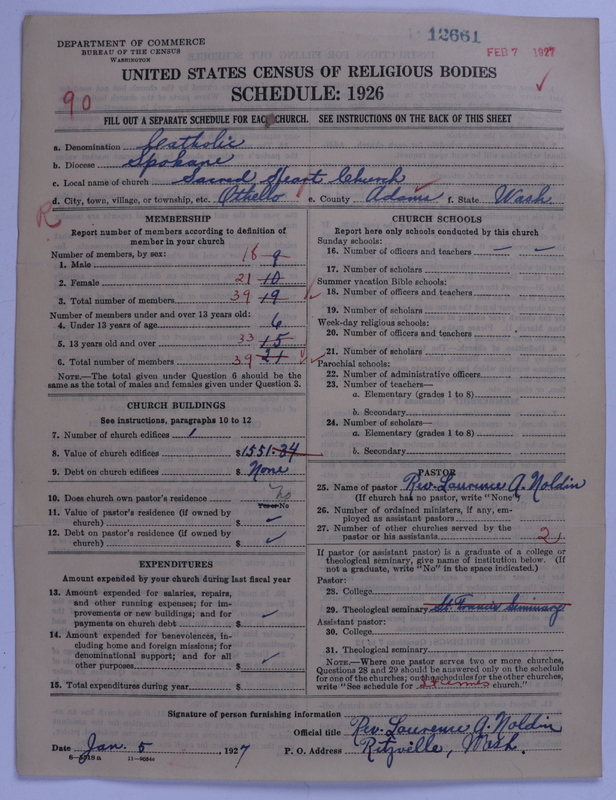 12661
FEB 7 1927
DEPARTMENT OF COMMERCE
BUREAU OF THE CENSUS
WASHINGTON
UNITED STATES CENSUS OF RELIGIOUS BODIES
SCHEDULE: 1926
90
FILL OUT A SEPARATE SCHEDULE FOR EACH CHURCH. SEE INSTRUCTIONS ON THE BACK OF THIS SHEET
a. Denomination Catholic
b. Diocese Spokane
c. Local name of church Sacred Heart Church
d. City, town, village, or township, etc. Othello e. County Adams f. State Wash.
R
MEMBERSHIP
Report number of members according to definition of
member in your church
Number of members, by sex:
1. Male 18 9
2. Female 21 10
3. Total number of members 39 19
Number of members under and over 13 years old:
4. Under 13 years of age 6
5. 13 years old and over 33 15
6. Total number of members 39 21
NOTE.—The total given under Question 6 should be
same as the total of males and females given under Question 3.
CHURCH BUILDINGS
See instructions, paragraphs 10 to 12
7. Number of church edifices 1
8. Value of church edifices $1551.34
9. Debt on church edifices $ None
10. Does church own pastor's residence No
Yes or No
11. Value of pastor's residence (if owned by
church) $
12. Debt on pastor's residence (if owned by
church) $
EXPENDITURES
Amount expended by your church during last fiscal year
13. Amount expended for salaries, repairs,
and other running expenses; for im-
provements or new buildings; and for
payments on church debt $
14. Amount expended for benevolences, in-
cluding home and foreign missions; for
denominational support; and for all
other purposes $
15. Total expenditures during year $
CHURCH SCHOOLS
Report here only schools conducted by this church
Sunday schools:
16. Number of officers and teachers — —
17. Number of scholars
Summer vacation Bible schools:
18. Number of officers and teachers
19. Number of scholars
Week-day religious schools:
20. Number of officers and teachers
21. Number of scholars
Parochial schools:
22. Number of administrative officers
23. Number of teachers—
a. Elementary (grades 1 to 8)
b. Secondary
24. Number of scholars—
a. Elementary (grades 1 to 8)
b. Secondary
PASTOR
25. Name of pastor Rev. Laurence A. Noldin
(If church has no pastor, write "None")
26. Number of ordained ministers, if any, em-
ployed as assistant pastors
27. Number of other churches served by the
pastor or his assistants 2
If pastor (or assistant pastor) is a graduate of a college or
theological seminary, give name of institution below. (If
not a graduate, write "No" in the space indicated.)
Pastor:
28. College
29. Theological seminary St. Francis Seminary
Assistant pastor:
30. College
31. Theological seminary
NOTE.—Where one pastor serves two or more churches,
Questions 28 and 29 should be answered only on the schedule
for one of the churches; on the schedules for the other churches,
write "See schedule for church."
Signature of person furnishing information
Official title Rev. Laurence A. Noldin
Date Jan. 5, 1927 P. O. Address Ritzville, Wash.